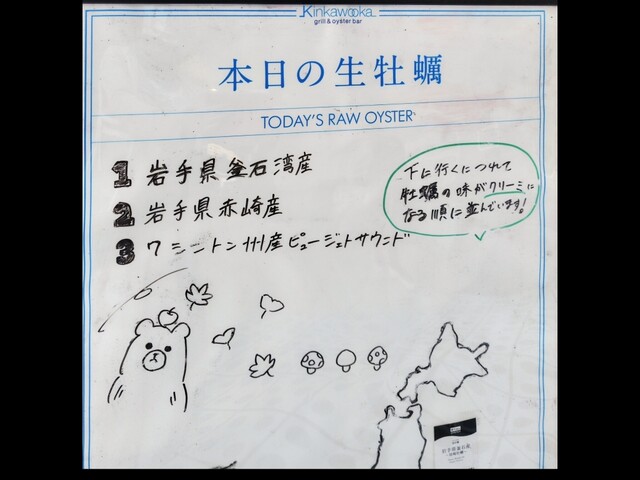 Kinkawooka
grill & oyster bar
本日の生牡蠣
TODAY'S RAW OYSTER
1 岩手県釜石湾産
2 岩手県赤崎産
3 ワシントン州産ピュージェトサウンド
下に行くにつれて
牡蠣の味がクリーミに
なる順に並んでいます!
岩手県釜石産